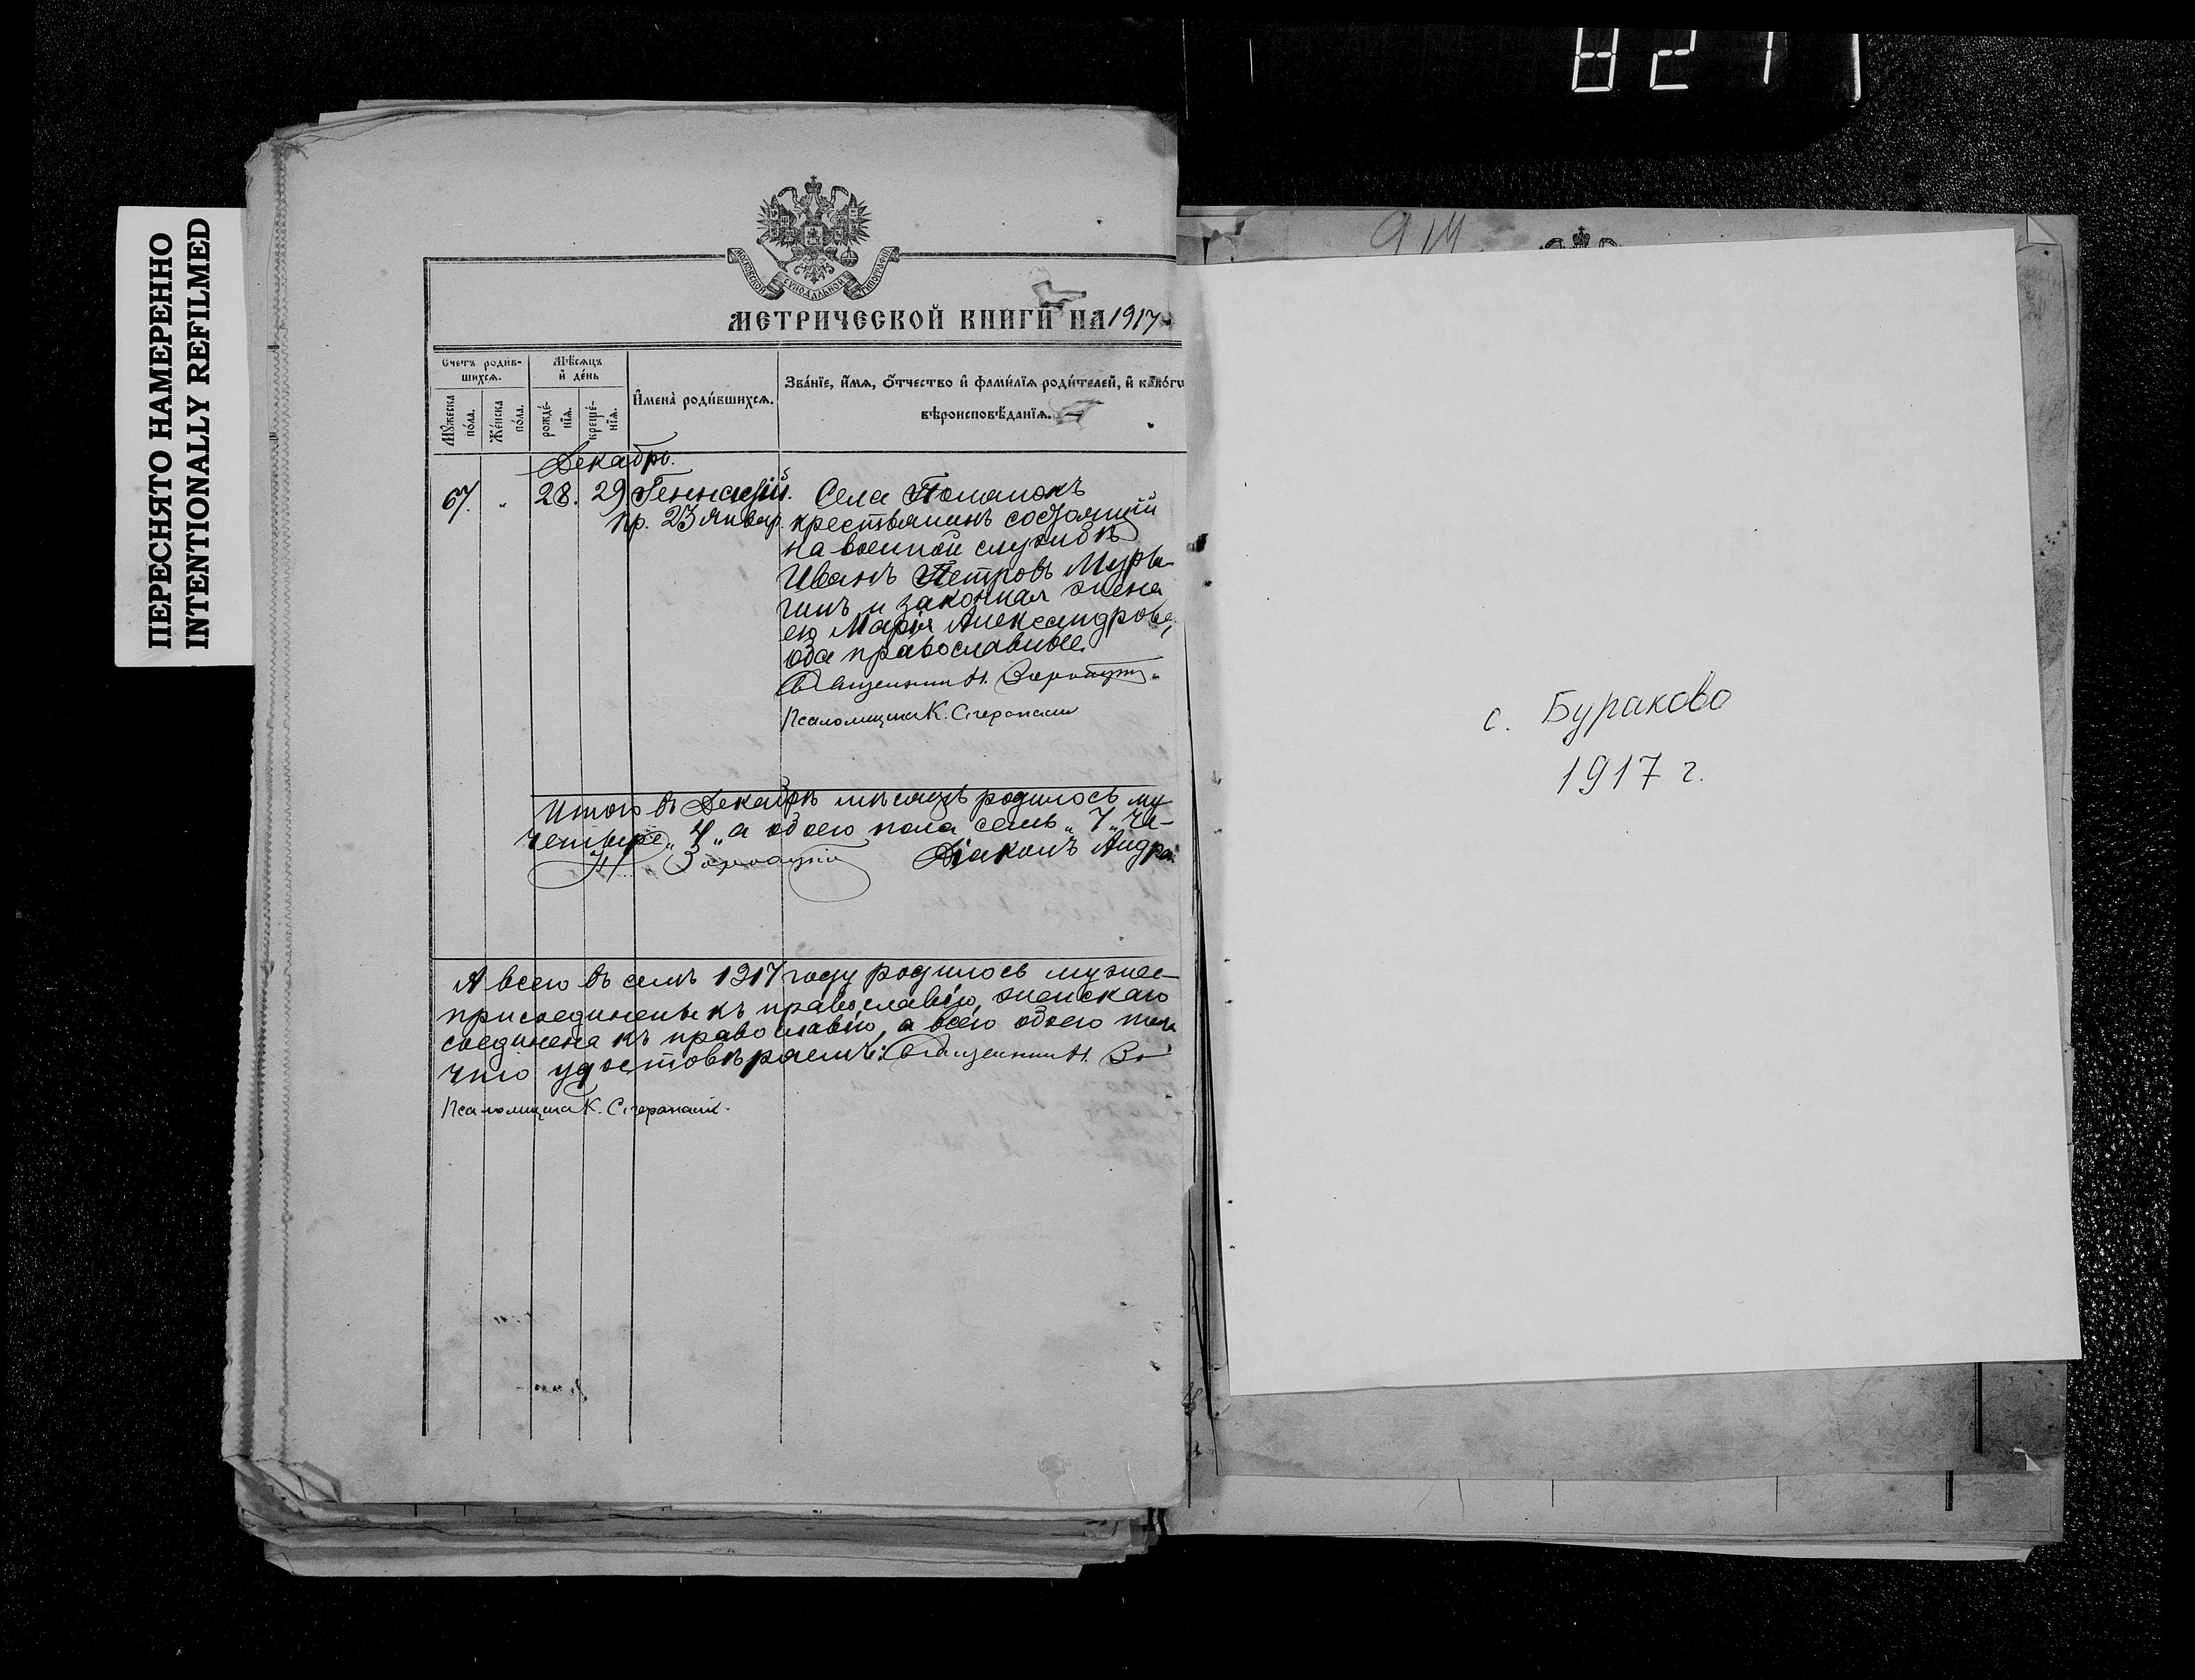 8271
ПЕРЕСНЯТО НАМЕРЕННО
INTENTIONALLY REFILMED
МОСКОВСКОЙ СѴНОДАЛЬНОЙ ТИПОГРАФІИ
МЕТРИЧЕСКОЙ КНИГИ НА 1917
Счетъ родив-
шихся.
Мѣсяцъ
и день
Мужеска
пола.
Женска
пола.
рожде-
нія.
креще-
нія.
Имена родившихся.
Званіе, имя, отчество и фамилія родителей, и каковаго
вѣроисповѣданія.
Декабрь.
67. " 28. 29 Геннадій.
пр. 23 Январ.
Села
крестьянинъ состоящій
на военной службѣ
Иванъ Петровъ Муры-
гинъ и законная жена
его Марія Александрова,
оба православные.
Священникъ Н.
Псаломщикъ К.
Итого въ Декабрѣ мѣсяцѣ родилось му
четыре „4„ а обоего пола семь „7„ че-
Н. Діаконъ Андре
А всего въ семъ 1917 году родилось мужес-
присоединены къ православію, женскаго
соединена къ православію, а всего обоего пола
что удостовѣряемъ: Священникъ Н.
Псаломщикъ К.
с. Бураково
1917 г.